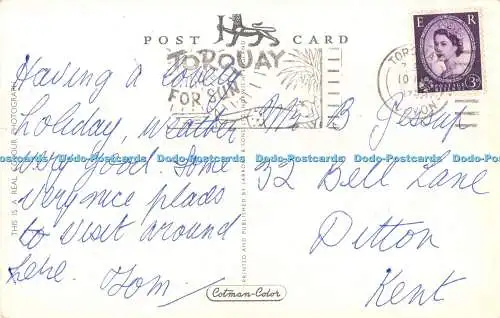 POST CARD
E R
POSTAGE REVENUE
3D
TORQUAY
FOR SUN
TORQUAY
DEVON
Having a lovely
holiday, weather
very good. Some
very nice places
to visit around
here. Tom.
Mr B Jessup
32 Bell Lane
Ditton
Kent
THIS IS A REAL COLOUR PHOTOGRAPH
PRINTED AND PUBLISHED BY JARROLD & SONS
Cotman-Color
Dodo-Postcards Dodo-Postcards Dodo-Postcards Dodo-Postcards Dodo-Postcards Dodo-Postcards